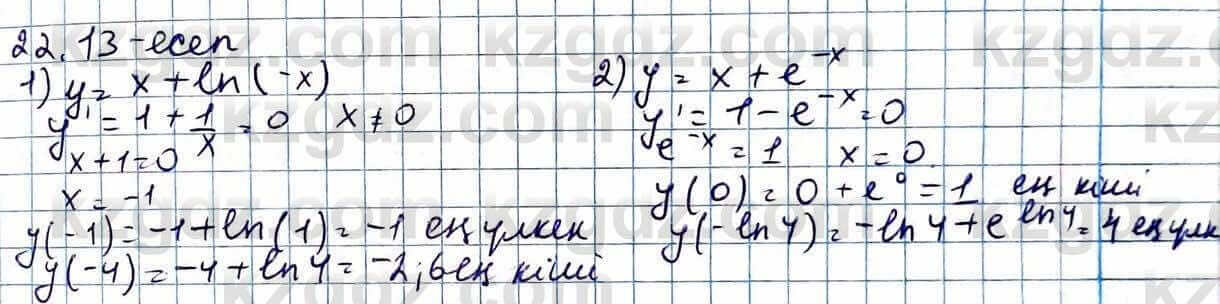 22.13-есеп
1) y = x + ln(-x)
y' = 1 + 1/x = 0   x ≠ 0
x + 1 = 0
x = -1
y(-1) = -1 + ln(1) = -1 ең үлкен
y(-4) = -4 + ln4 = -2,6 ең кіші
2) y = x + e^-x
y' = 1 - e^-x = 0
e^-x = 1   x = 0.
y(0) = 0 + e^0 = 1 ең кіші
y(-ln4) = -ln4 + e^ln4 = 4 ең үлк
kzgdz.com kzgdz.com